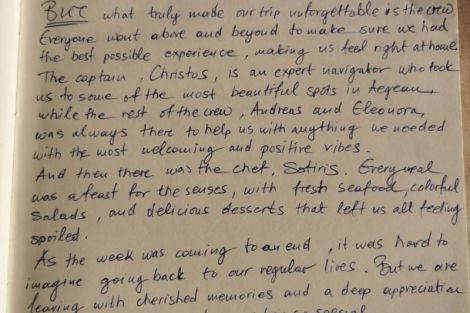 But what truly made our trip unforgettable is the crew.
Everyone went above and beyond to make sure we had
the best possible experience, making us feel right at home.
The captain, Christos, is an expert navigator who took
us to some of the most beautiful spots in Aegean,
while the rest of the crew, Andreas and Eleonora,
was always there to help us with anything we needed
with the most welcoming and positive vibes.
And then there was the chef, Sotiris. Every meal
was a feast for the senses, with fresh seafood, colorful
salads, and delicious desserts that left us all feeling
spoiled.
As the week was coming to an end, it was hard to
imagine going back to our regular lives. But we are
leaving with cherished memories and a deep appreciation
special